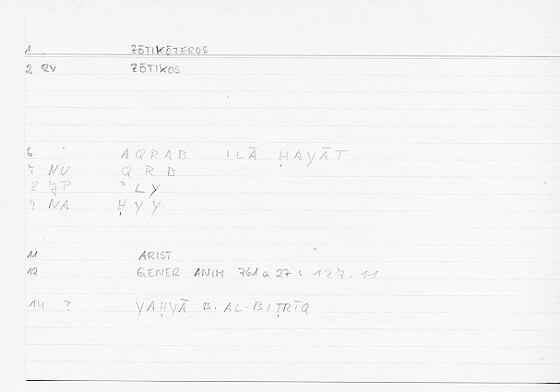 1 ZŌTIKŌTEROS
2 RV ZŌTIKOS
6 AQRAB ILĀ ḤAYĀT
7 NU QRB
8 JP ʾLY
9 NA ḤYY
11 ARIST
12 GENER ANIM 761a27: 127.11
14 ? YAḤYĀ B. AL-BIṬRĪQ